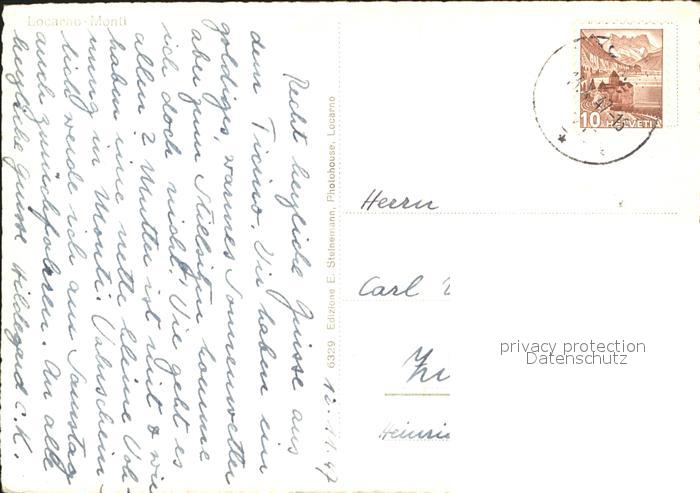 Locarno-Monti
12. 11. 47
Recht herzliche Grüsse aus
dem Ticino. Wir haben ein
goldiges, warmes Sonnenwetter
aber zum Stillsitzen komme
ich doch nicht! Wie geht es
allen? Mutter ist mit & wir
haben eine nette kleine Woh-
nung in Monti. Wahrschein-
lich werde ich am Samstag
auch zurückfahren. An alle
herzliche Grüsse Hildegard C. K.
6329 Edizione E. Steinemann, Photohouse, Locarno
10 HELVETIA
Herrn
Carl
Heinri
privacy protection
Datenschutz